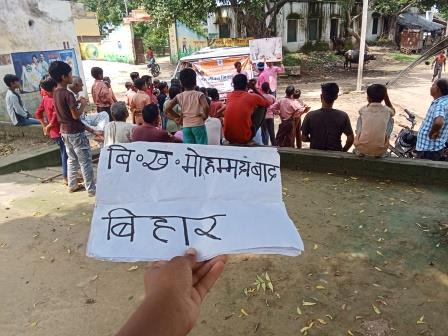 बि॰ख॰मोहम्मदाबाद
बिहार